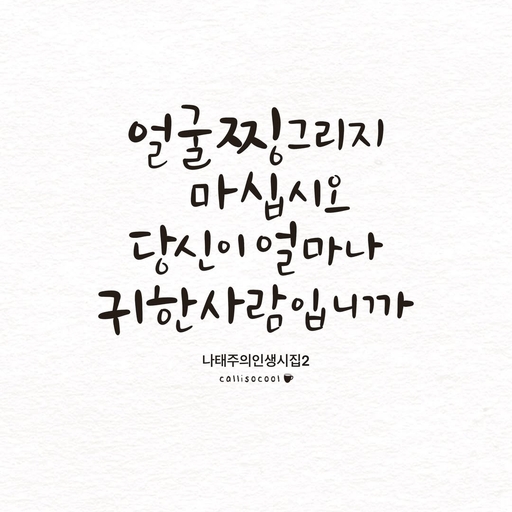 얼굴 찡그리지
마십시오
당신이 얼마나
귀한사람입니까
나태주의인생시집2
callisocool